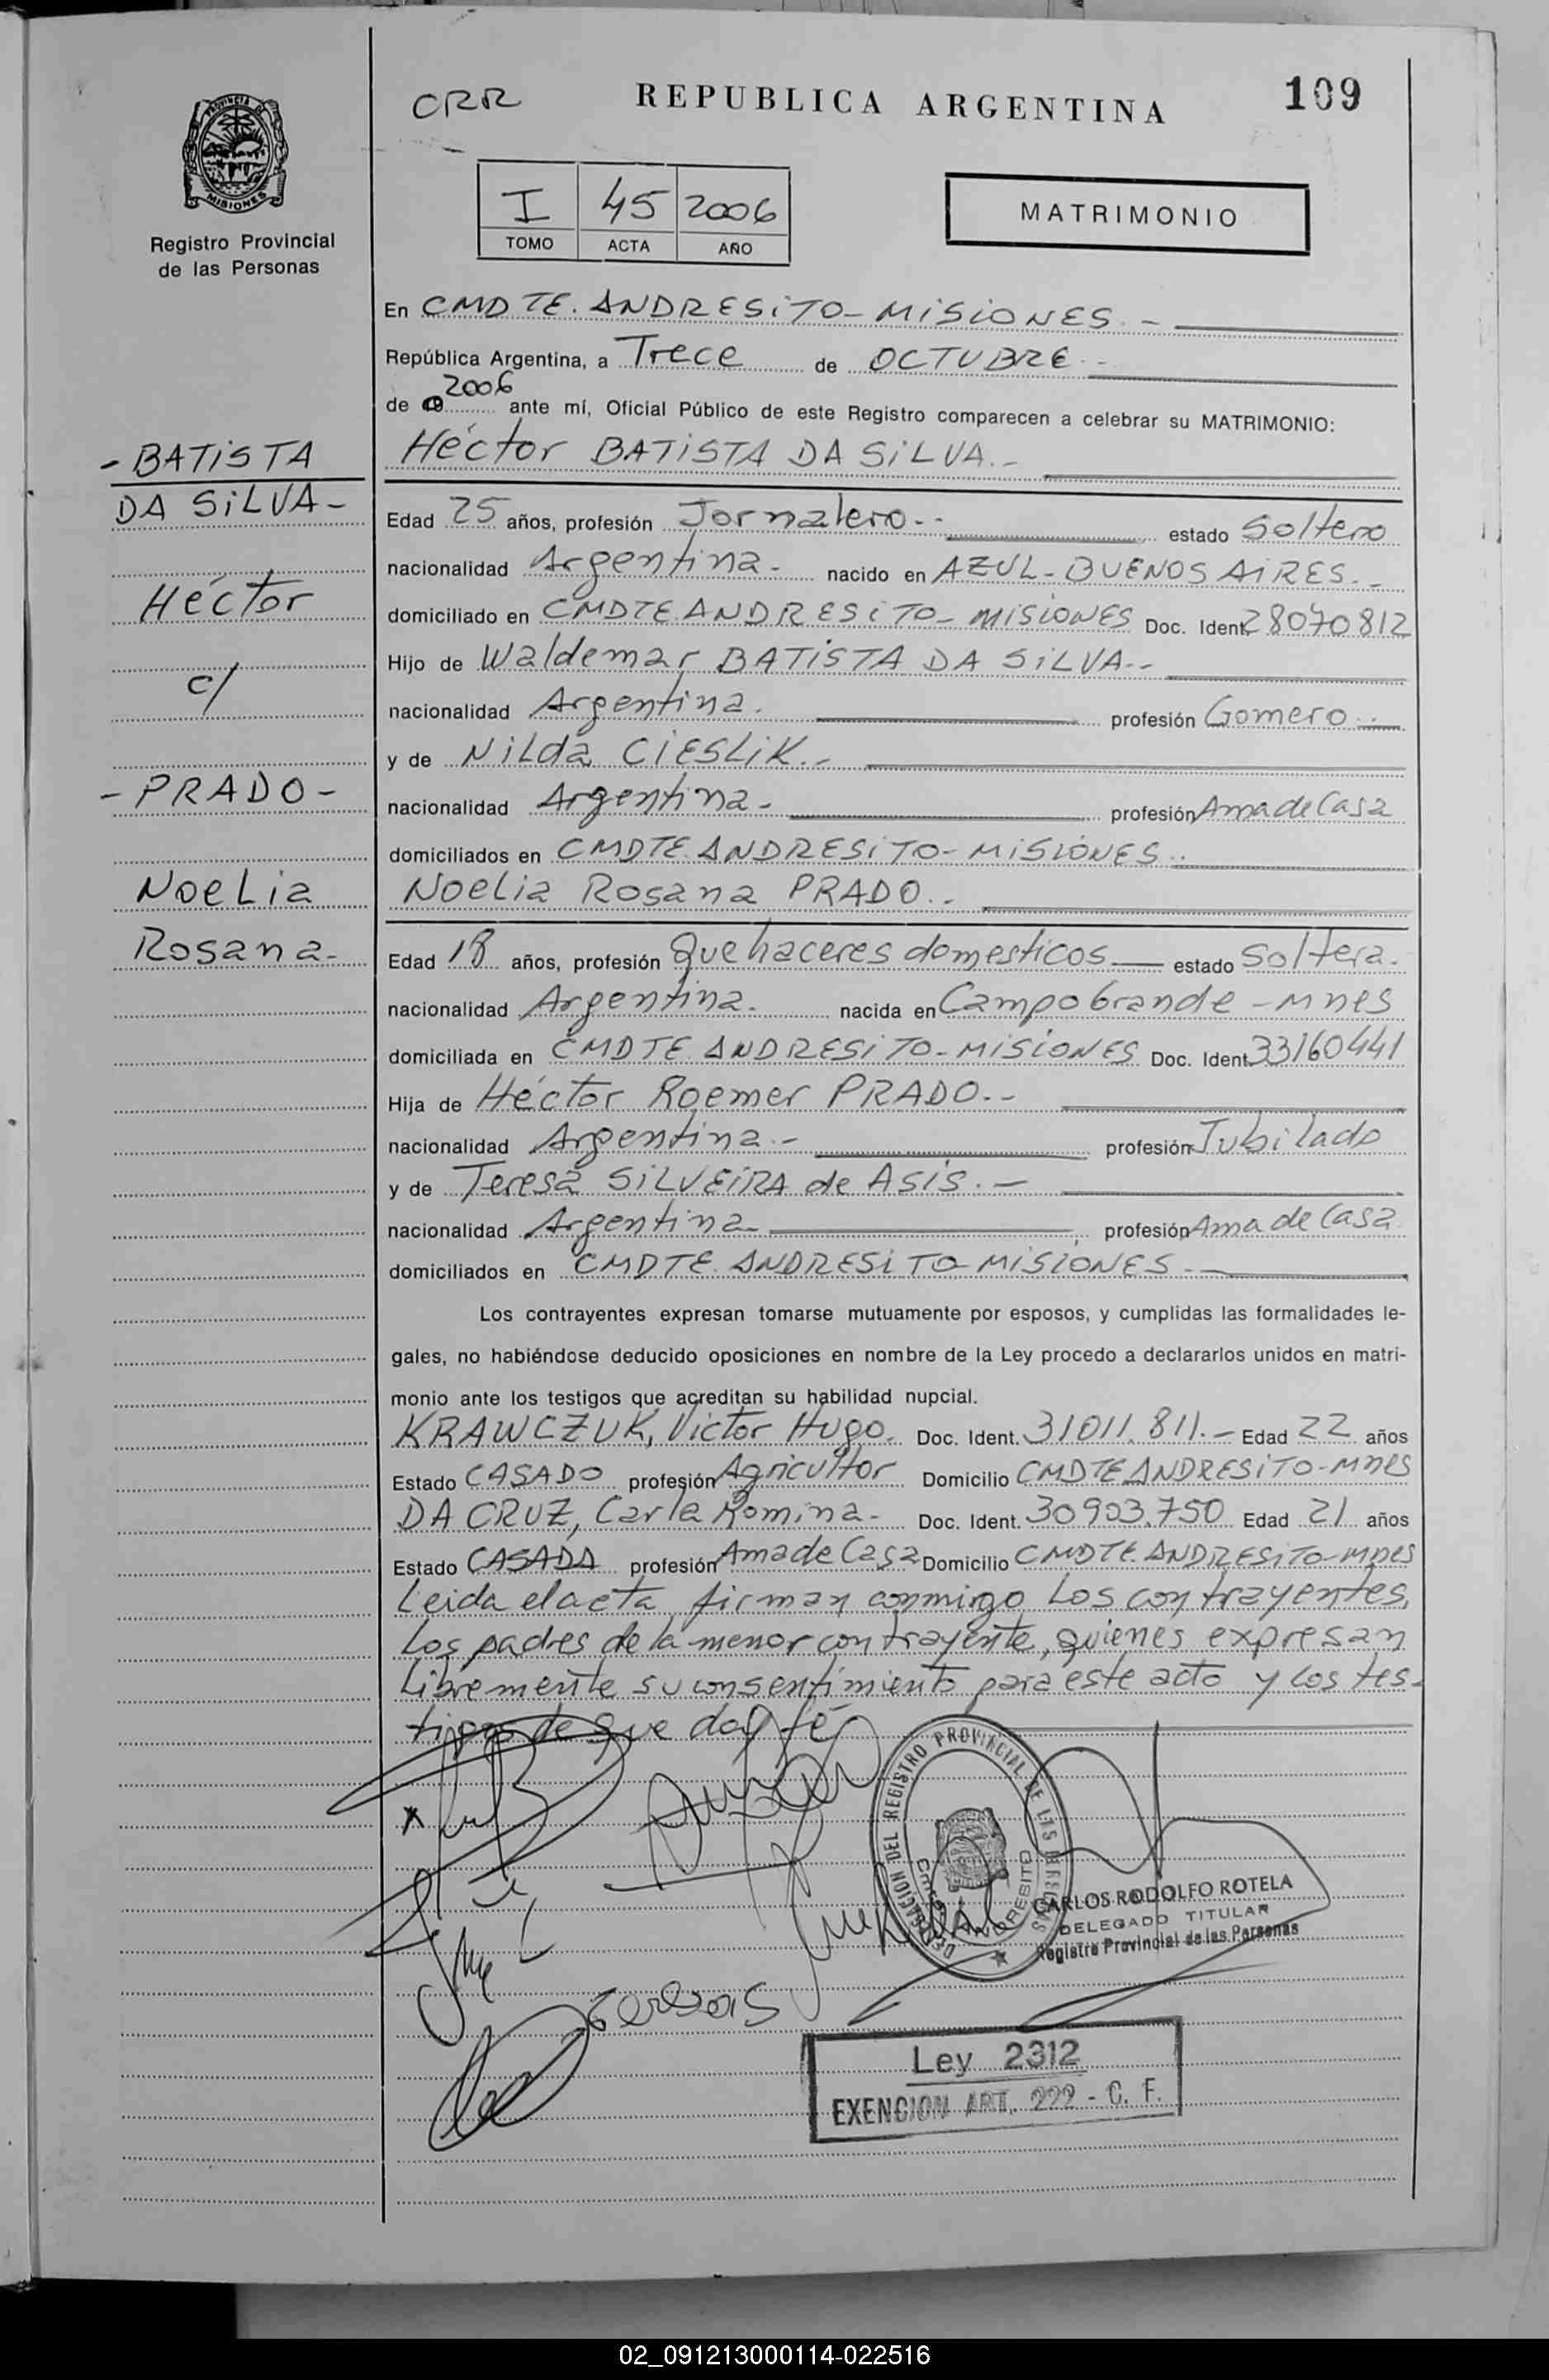 CRR
REPUBLICA ARGENTINA
109
PROVINCIA DE
MISIONES
Registro Provincial
de las Personas
I 45 2006
TOMO ACTA AÑO
MATRIMONIO
En CMDTE. ANDRESiTO - MiSiONES. -
República Argentina, a Trece de OCTUBRE -
2006
de 19 ante mí, Oficial Público de este Registro comparecen a celebrar su MATRIMONIO:
- BATiSTA
DA SiLVA -
Héctor
c/
- PRADO -
NoeLia
Rosana -
Héctor BATiSTA DA SiLVA. -
Edad 25 años, profesión Jornalero. - estado Soltero
nacionalidad Argentina - nacido en AZUL - BUENOS AiRES. -
domiciliado en CMDTE ANDRESiTO - MiSiONES Doc. Ident. 28070812
Hijo de Waldemar BATiSTA DA SiLVA. -
nacionalidad Argentina. profesión Gomero. -
y de NiLda CiESLiK. -
nacionalidad Argentina - profesión Ama de Casa
domiciliados en CMDTE. ANDRESiTO - MiSiONES. -
Noelia Rosana PRADO. -
Edad 18 años, profesión Que haceres domesticos estado Soltera.
nacionalidad Argentina. nacida en Campo Grande - Mnes
domiciliada en CMDTE ANDRESiTO - MiSiONES Doc. Ident. 33160441
Hija de Héctor Roemer PRADO. -
nacionalidad Argentina. - profesión Jubilado
y de Teresa SiLVEiRA de ASiS. -
nacionalidad Argentina - profesión Ama de Casa
domiciliados en CMDTE. ANDRESiTO - MiSiONES. -
Los contrayentes expresan tomarse mutuamente por esposos, y cumplidas las formalidades le-
gales, no habiéndose deducido oposiciones en nombre de la Ley procedo a declararlos unidos en matri-
monio ante los testigos que acreditan su habilidad nupcial.
KRAWCZUK, Victor Hugo. Doc. Ident. 31011.811. - Edad 22 años
Estado CASADO profesión Agricultor Domicilio CMDTE ANDRESiTO - Mnes
DA CRUZ, Carla Romina - Doc. Ident. 30903.750 Edad 21 años
Estado CASADA profesión Ama de Casa Domicilio CMDTE. ANDRESiTO - Mnes
Leida el acta, firman conmigo Los contrayentes,
Los padres de la menor contrayente, quienes expresan
Libremente su consentimiento para este acto y Los tes-
tigos de que doy fé
DELEGACION DEL REGISTRO PROVINCIAL DE LAS PERSONAS
ANDRESITO
CARLOS RODOLFO ROTELA
DELEGADO TITULAR
Registro Provincial de las Personas
Ley 2312
EXENCION ART. 222 - C. F.
02_091213000114-022516